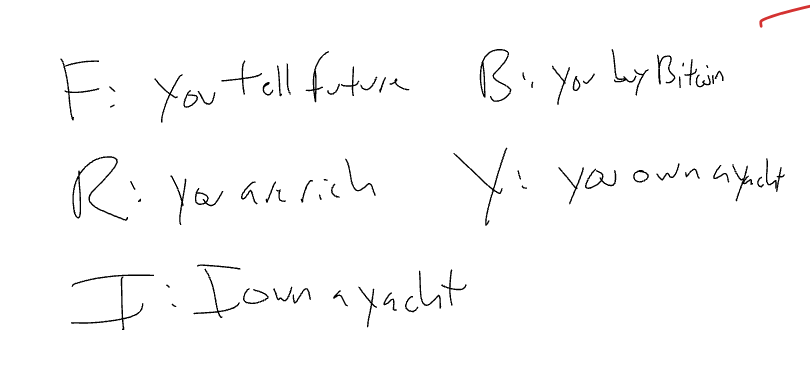 F: You tell future B: you buy Bitcoin
R: you are rich Y: you own a yacht
I: I own a yacht